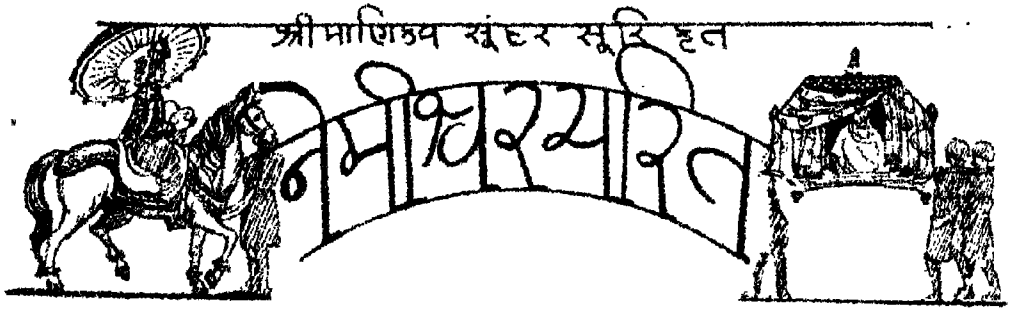 श्री माणिक्य सुंदर सूरि कृत
नेमीश्वरचरित